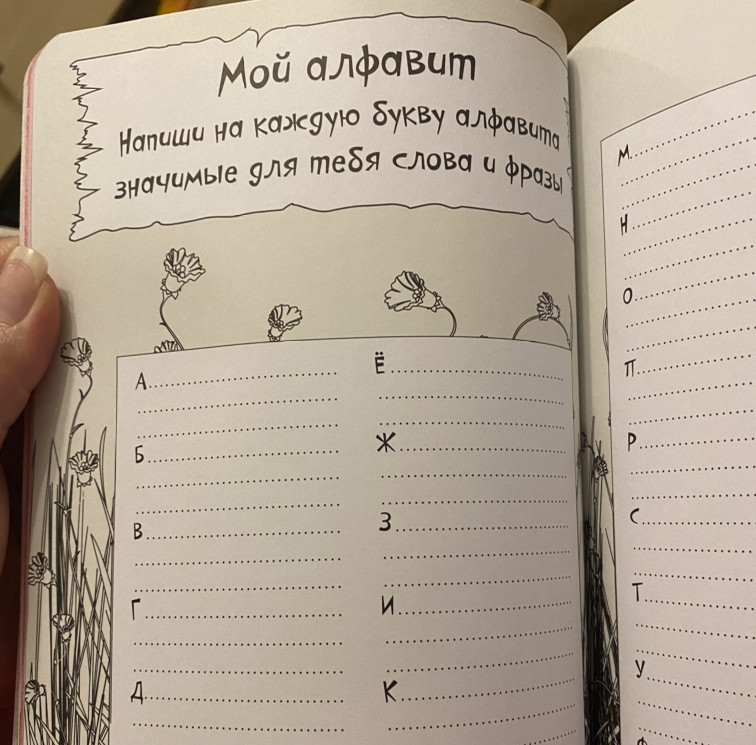 Мой алфавит
Напиши на каждую букву алфавита
значимые для тебя слова и фразы
А
Б
В
Г
Д
Ё
Ж
З
И
К
М
Н
О
П
Р
С
Т
У